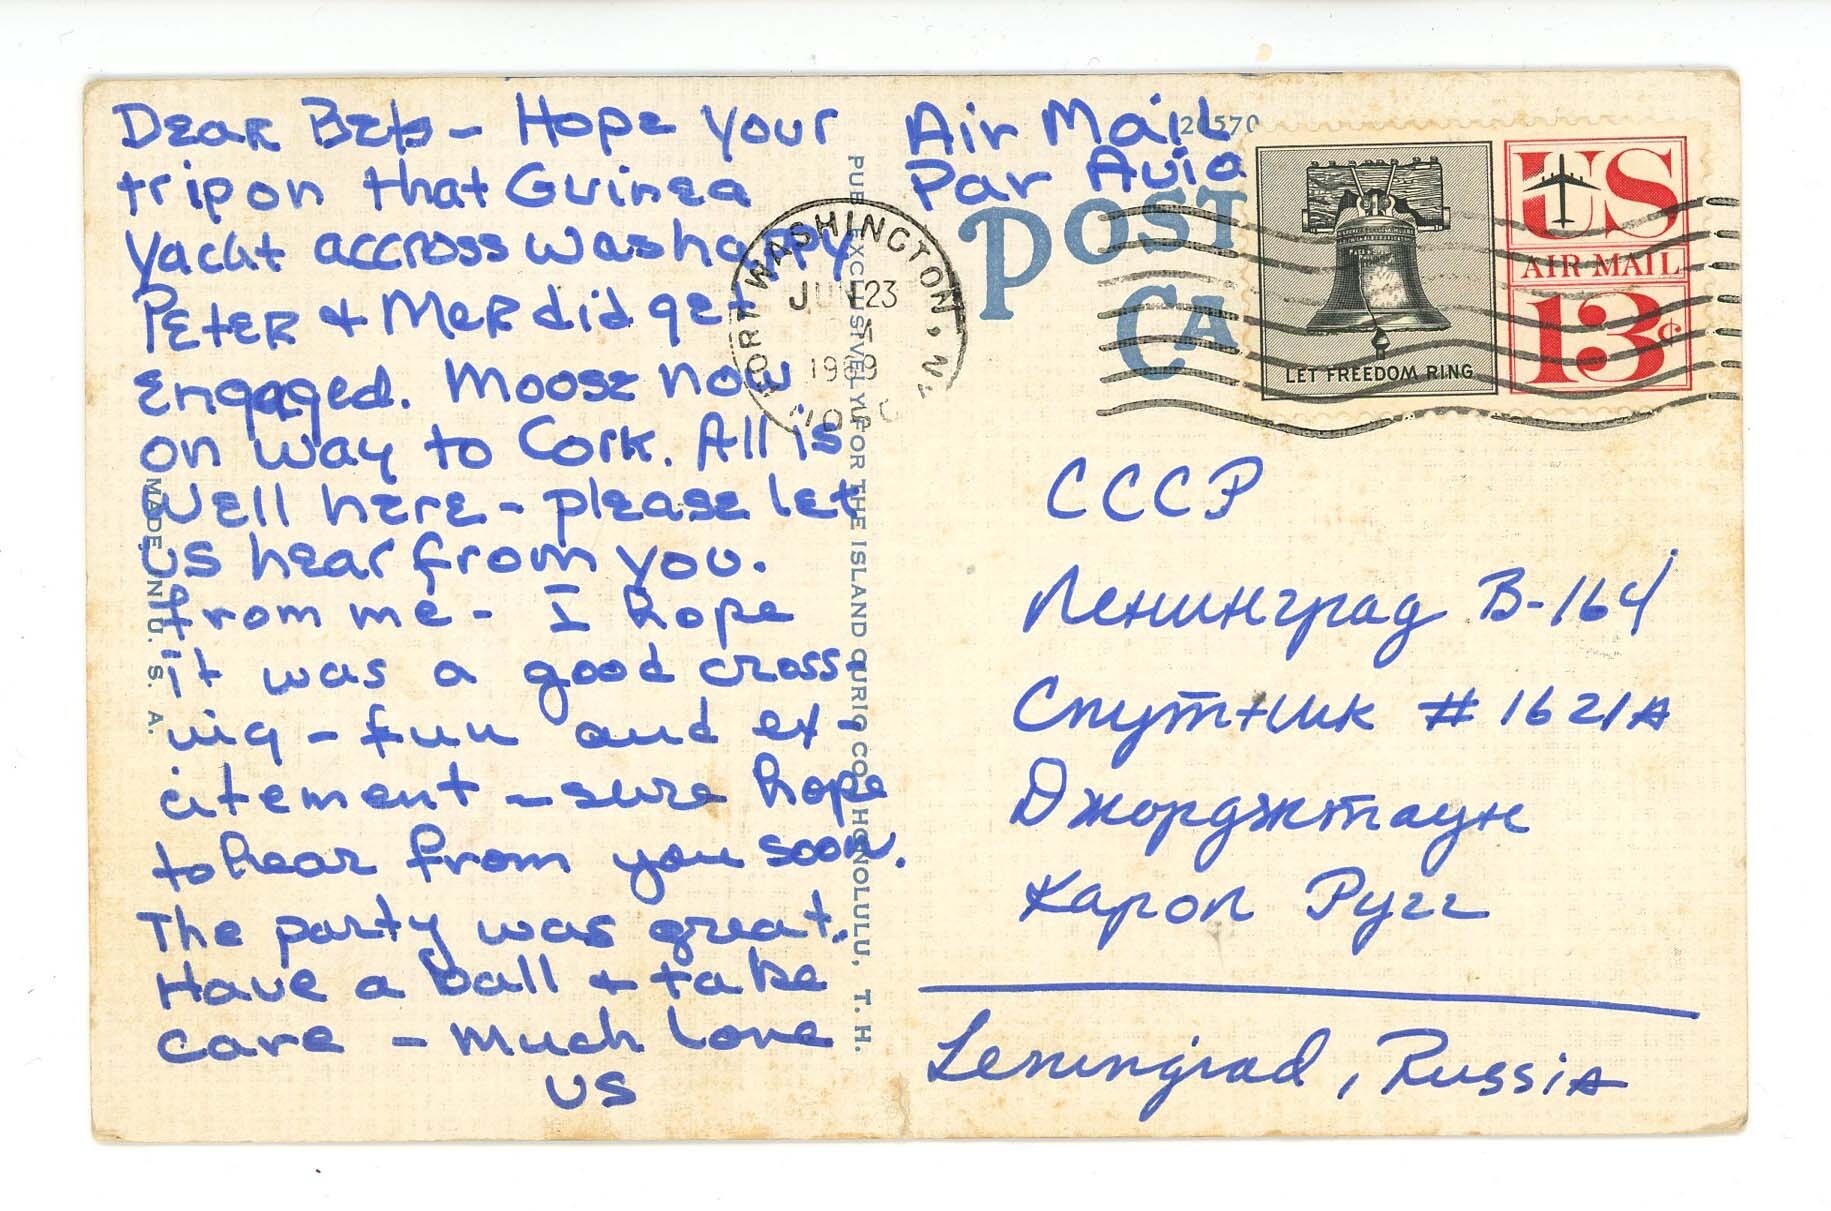 Dear Beb - Hope your
trip on that Guinea
Yacht accross was happy
Peter & Mer did get
Engaged. Moose now
on way to Cork. All is
Well here - please let
us hear from you.
from me - I hope
it was a good cross-
ing - fun and ex-
citement - sure hope
to hear from you soon.
The party was great.
Have a ball & take
care - Much Love
US
MADE IN U. S. A.
PUB. EXCLUSIVELY FOR THE ISLAND CURIO CO., HONOLULU, T. H.
Air Mail
Par Avia
20570
POST
CA
FORT WASHINGTON, 
JUN 23
1969
LET FREEDOM RING
US
AIR MAIL
13¢
СССР
Ленинград В-164
Спутник # 1621A
Джорджтаун
Карол Ругг
Leningrad, Russia